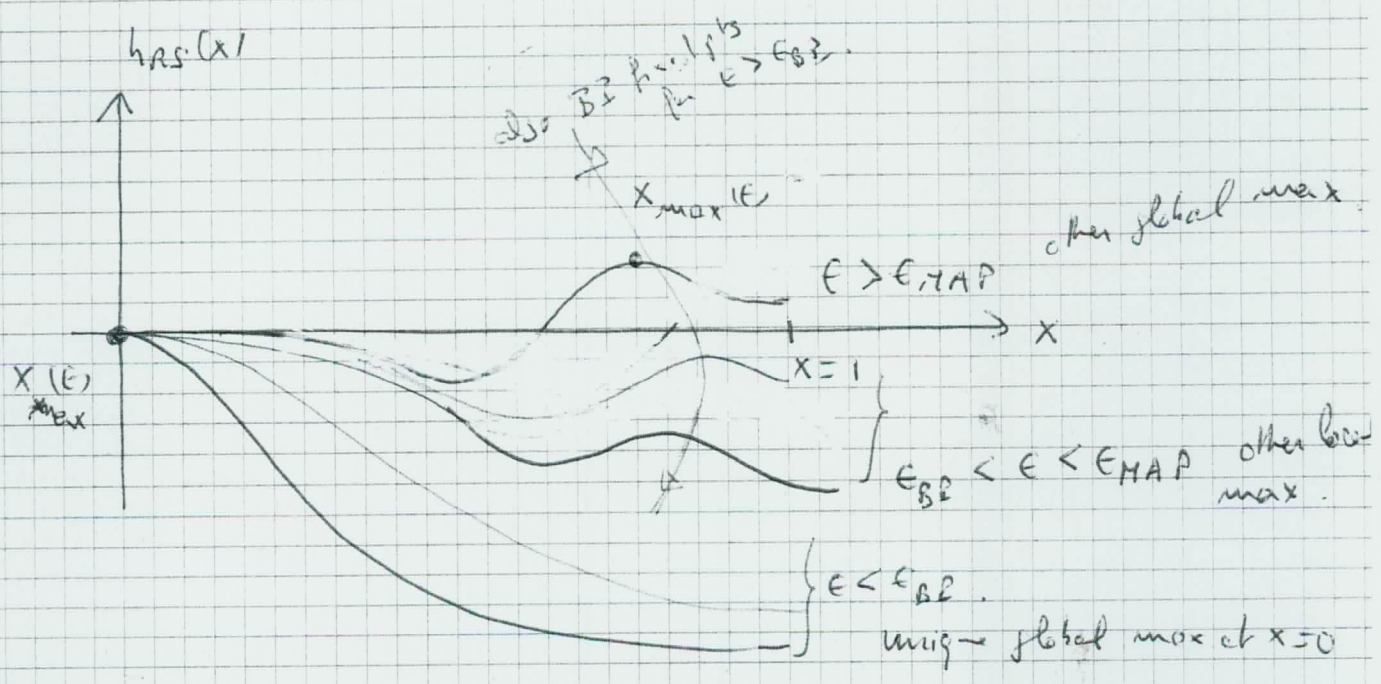 h_RS(x)
also BP fixed pts
for ε > ε_BP.
x_max(ε)
other global max.
ε > ε_MAP
x
x = 1
x_max(ε)
ε_BP < ε < ε_MAP other local
max.
ε < ε_BP.
unique global max at x=0